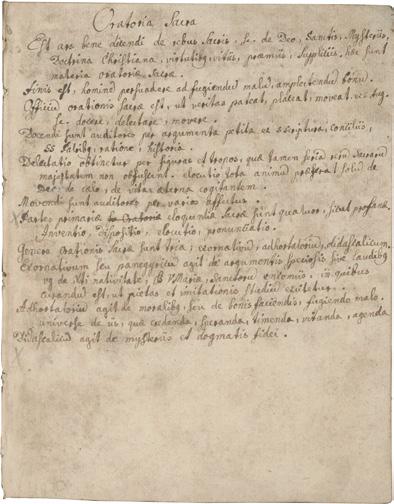 Oratoria Sacra
Est ars bene dicendi de rebus Sacris, se. de Deo, Sanctis, Mysteriis,
Doctrina Christiana, virtutibus, vitiis, præmiis, Suppliciis, hæc sunt
materia oratoriæ Sacræ.
Finis est, homini persuadere ad fugiendū malū, amplectendū bonū.
Officiū orationis Sacræ est, ut veritas pateat, placeat, moveat. ex Aug.
se. docere, delectare, movere.
Docendi sunt auditores per argumenta petita ex scriptura, conciliis,
SS Patribus, ratione, historia.
Delectatio obtinetur per figuras et tropos, qua tamen seria rerū Sacrarū
majestatem non offuscent. elocutio tota animū præferat solid de
Deo, de cælo, de vita æterna cogitantem.
Movendi sunt auditores per varios affectus.
Partes primariæ eloquentiæ Sacræ sunt quatuor, sicut profanæ,
Inventio, dispositio, elocutio, pronuntiatio.
Genera orationis Sacræ sunt tria; exornativū, adhortatoriū, didascalicum.
Exornativum seu panegyricū agit de argumentis speciosis sive laudibus
vg de Xti nativitate, B V Maria, Sanctorū encomiis, in quibus
curandū est, ut pietas et imitationis studiū excitetur.
Adhortatoriū agit de moralibus, seu de bonis faciendis, fugiendo malo.
universe de iis, quæ credenda, speranda, timenda, vitanda, agenda
Didascalicū agit de mysteriis et dogmatis fidei.